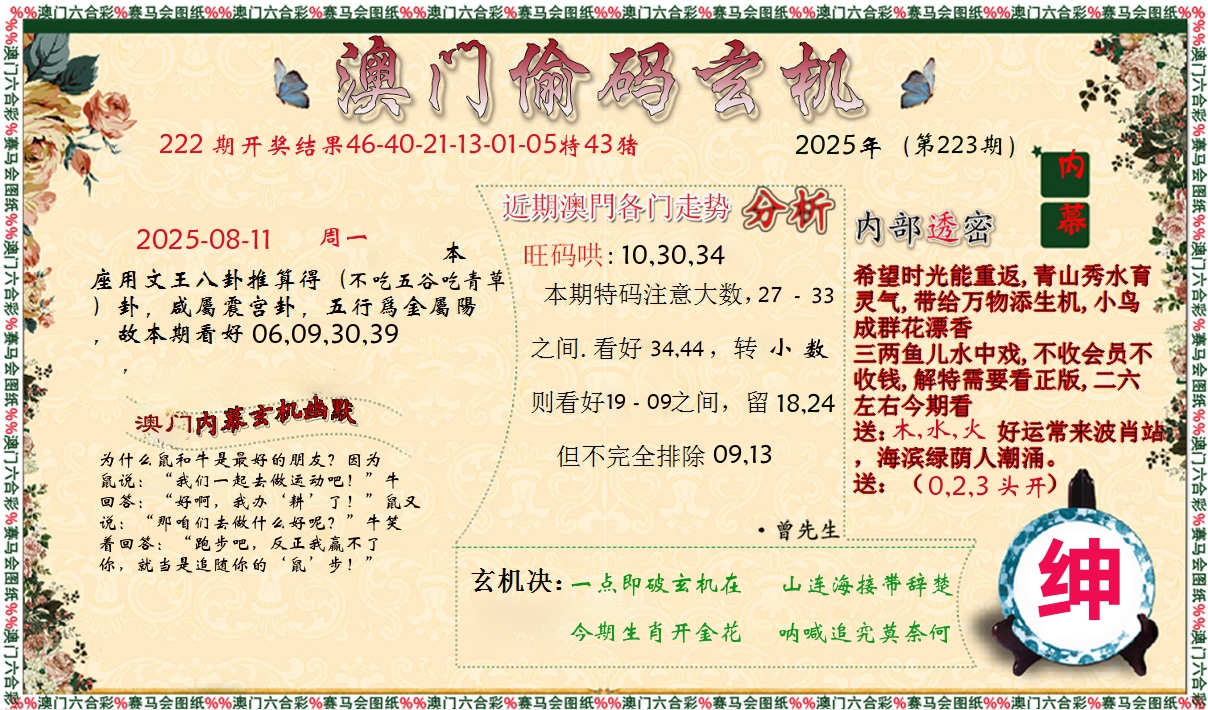 %%澳门六合彩%赛马会图纸%%澳门六合彩%赛马会图纸%%澳门六合彩%赛马会图纸%%澳门六合彩%赛马会图纸%%澳门六合彩%赛马会图纸%%澳门六合彩%赛马会图纸%%
澳门偷码玄机
222 期开奖结果46-40-21-13-01-05特43猪
2025年（第223期）
内
幕
2025-08-11 周一
本
座用文王八卦推算得（不吃五谷吃青草
）卦，咸屬震宫卦，五行爲金屬陽
，故本期看好 06,09,30,39
，
澳门内幕玄机幽默
为什么鼠和牛是最好的朋友？因为
鼠说：“我们一起去做运动吧！”牛
回答：“好啊，我办‘耕’了！”鼠又
说：“那咱们去做什么好呢？”牛笑
着回答：“跑步吧，反正我赢不了
你，就当是追随你的‘鼠’步！”
近期澳門各门走势 分析
旺码哄: 10,30,34
本期特码注意大数，27 - 33
之间. 看好 34,44 ，转 小 数
则看好19 - 09之间，留 18,24
但不完全排除 09,13
·曾先生
内部透密
希望时光能重返, 青山秀水育
灵气, 带给万物添生机, 小鸟
成群花漂香
三两鱼儿水中戏, 不收会员不
收钱, 解特需要看正版, 二六
左右今期看
送: 木,水,火 好运常来波肖站
，海滨绿荫人潮涌。
送: （0,2,3 头开）
玄机决: 一点即破玄机在 山连海接带辞楚
今期生肖开金花 呐喊追究莫奈何
绅
%%澳门六合彩%赛马会图纸%%澳门六合彩%赛马会图纸%%澳门六合彩%赛马会图纸%%澳门六合彩%赛马会图纸%%澳门六合彩%赛马会图纸%%澳门六合彩%赛马会图纸%%